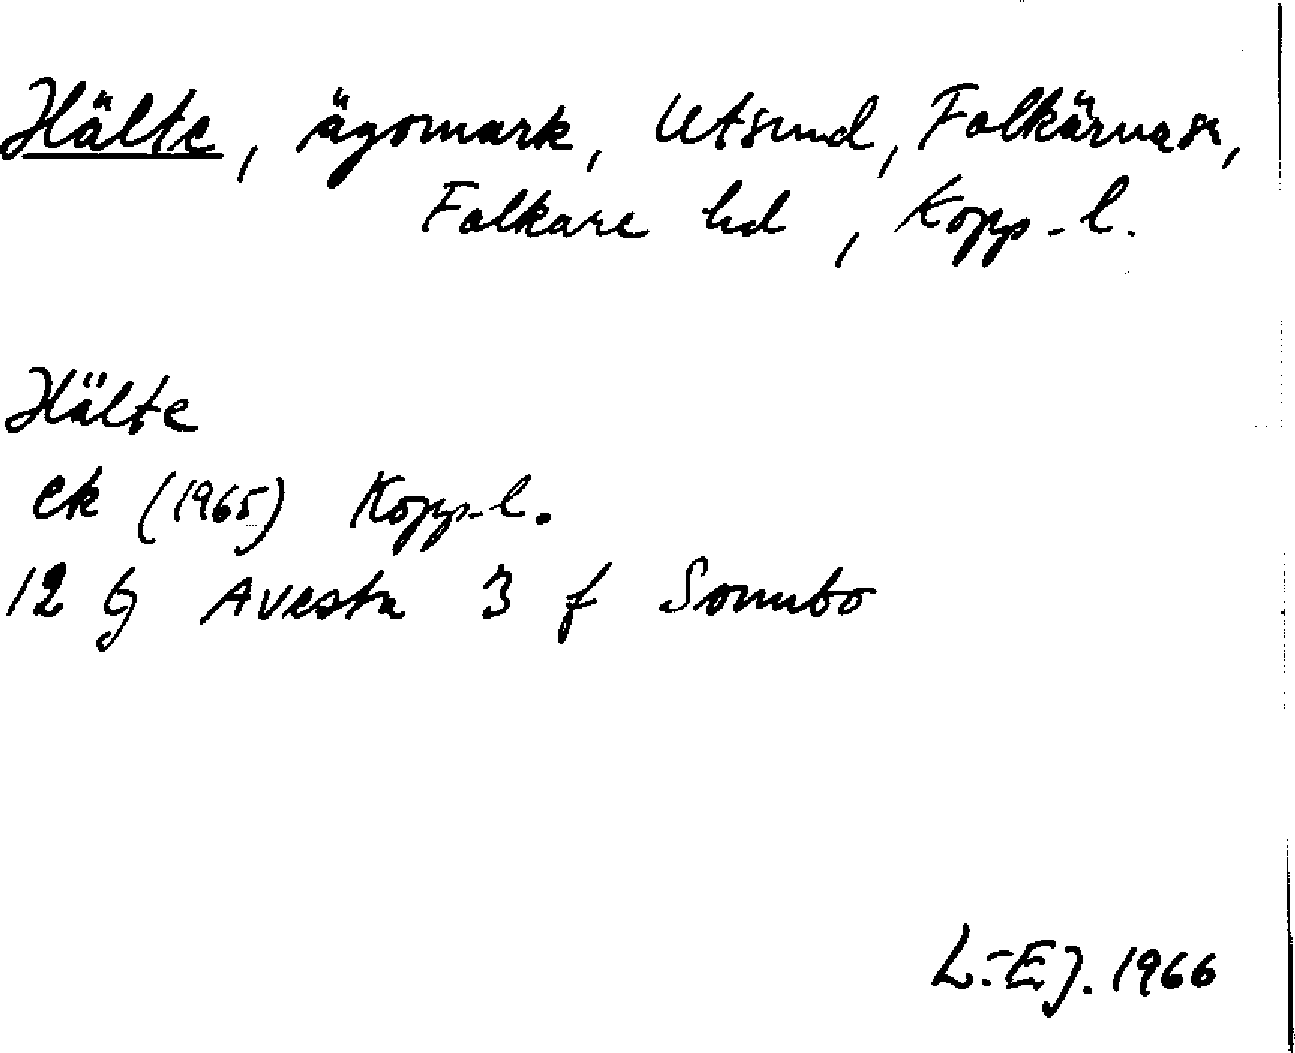 Hälte, ägomark, Utsund, Folkärna sn,
Folkare hd, Kopp-l.
Hälte
ek (1965) Kopp-l.
12 G Avesta 3 f Sonnbo
L.-E J. 1966